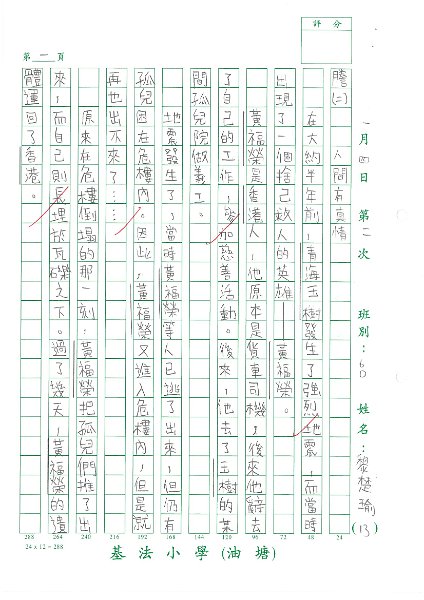 評分
第二頁
一月四日 第二次 班別：6D 姓名：黎楚瑜(13)
謄(二) 人間有真情
在大約半年前，青海玉樹發生了強烈地震，而當時
出現了一個捨己救人的英雄——黃福榮。
黃福榮是香港人，他原本是貨車司機，後來他辭去
了自己的工作，參加慈善活動。後來，他去了玉樹的某
間孤兒院做義工。
地震發生了，當時黃福榮等人已逃了出來，但仍有
孤兒困在危樓內。因此，黃福榮又進入危樓內，但是就
再也出不來了……
原來在危樓倒塌的那一刻，黃福榮把孤兒們推了出
來，而自己則長埋於瓦礫之下。過了幾天，黃福榮的遺
體運回了香港。
288 264 240 216 192 168 144 120 96 72 48 24
24 x 12 = 288
基法小學(油塘)